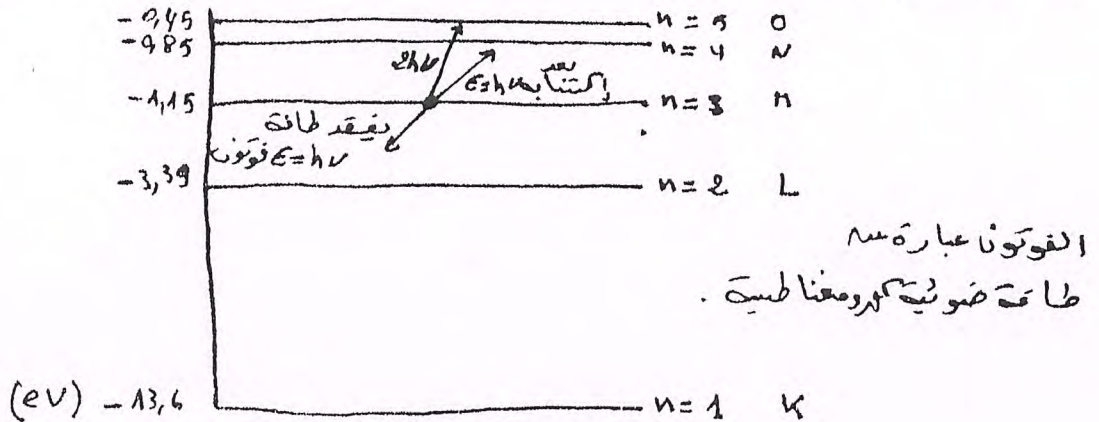 - 0,45 n = 5 O
- 0,85 n = 4 N
2hν
بعد
إكتسابه ε=hν
- 1,15 n = 3 M
يفقد طاقة
فوتون ε=hν
- 3,39 n = 2 L
الفوتون عبارة عن
طاقة ضوئية كهرومغناطيسية .
(eV) - 13,6 n = 1 K